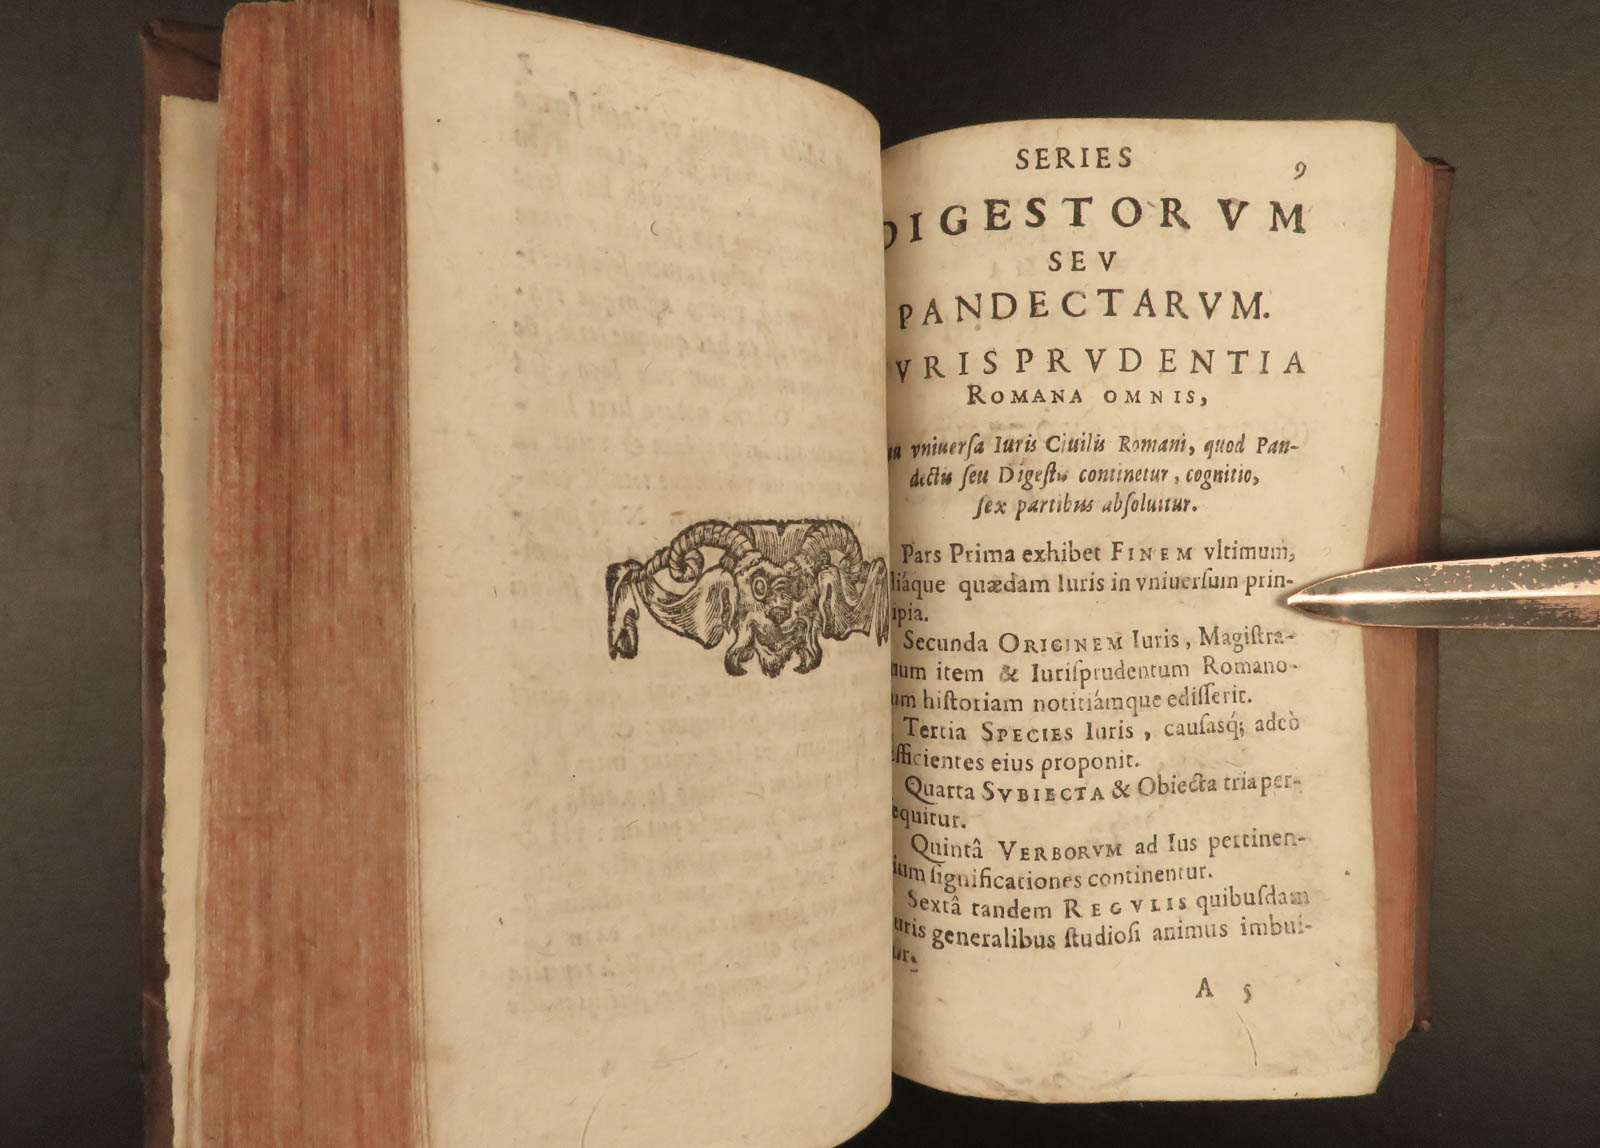 SERIES
9
DIGESTORVM
SEV
PANDECTARVM.
VRISPRVDENTIA
ROMANA OMNIS,
vniuerſa Iuris Ciuilis Romani, quod Pan-
dectis ſeu Digeſtis continetur, cognitio,
ſex partibus abſoluitur.
Pars Prima exhibet FINEM vltimum,
liáque quædam Iuris in vniuerſum prin-
ipia.
Secunda ORIGINEM Iuris, Magiſtra-
uum item & Iuriſprudentum Romano-
um hiſtoriam notitiámque ediſſerit.
Tertia SPECIES Iuris, cauſasq́; adeò
efficientes eius proponit.
Quarta SVBIECTA & Obiecta tria per-
equitur.
Quintâ VERBORVM ad Ius pertinen-
ium ſignificationes continentur.
Sextâ tandem REGVLIS quibuſdam
uris generalibus ſtudioſi animus imbui-
ur.
A 5